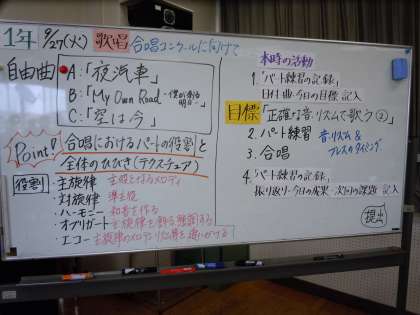 1年 9/27(火) 歌唱 合唱コンクールに向けて
自由曲
A:「夜汽車」
B:「My Own Road -僕が創る明日-」
C:「空は今」
Point!
合唱におけるパートの役割と
全体のひびき(テクスチュア)
役割
・主旋律 主役となるメロディ
・対旋律 準主役
・ハーモニー 和音を作る
・オブリガート 主旋律を飾る
・エコー 主旋律のメロディ
本時の活動
1.「パート練習の記録」
日付・曲・今日の目標 記入
目標「正確な音・リズムで歌う②」
2. パート練習 音・リズム &
ブレスのタイミング
3. 合唱
4.「パート練習の記録」
振り返り・今日の成果 次回の課題 記入
提出